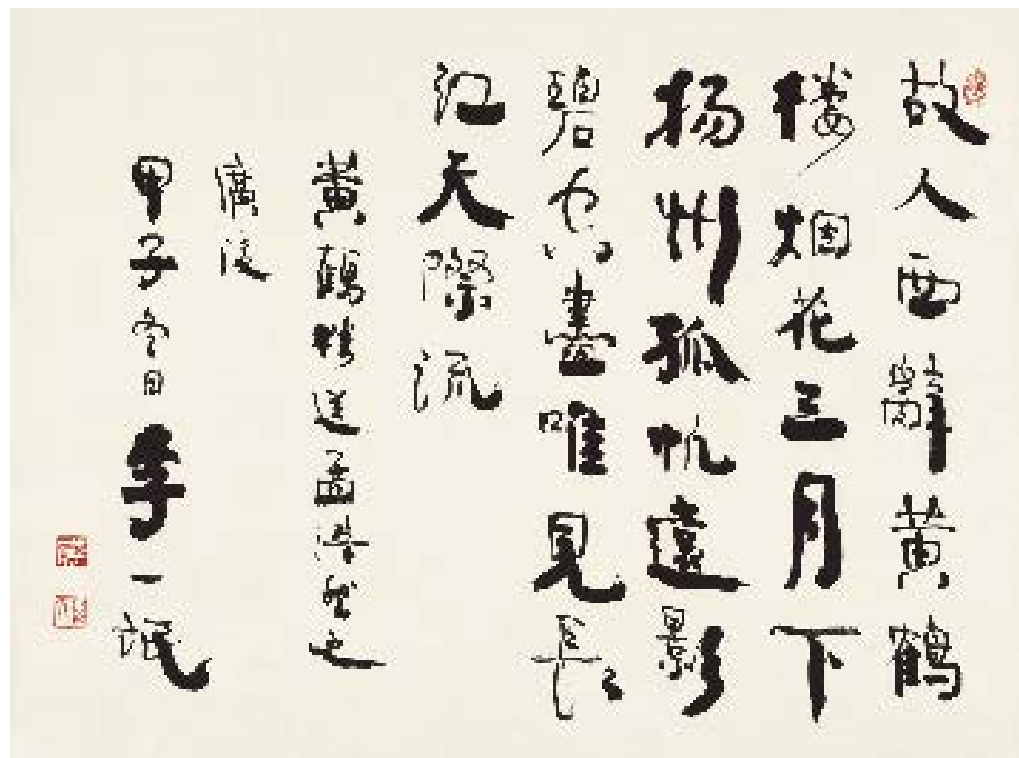 故人西辭黄鶴
楼烟花三月下
揚州孤帆遠影
碧空盡唯見長
江天際流
黄鶴楼送孟浩然之
廣陵
甲子冬日李一氓